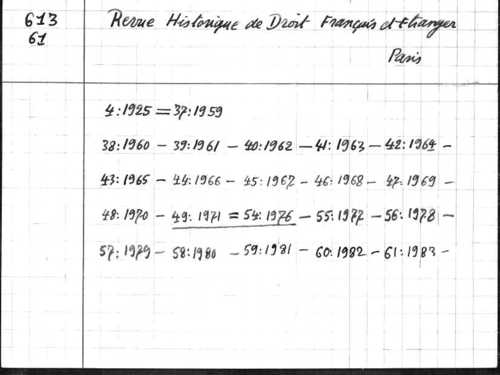 613 Revue Historique de Droit Français et Etranger
61 Paris
4:1925 = 37:1959
38:1960 – 39:1961 – 40:1962 – 41:1963 – 42:1964 –
43:1965 – 44:1966 – 45:1967 – 46:1968 – 47:1969 –
48:1970 – 49:1971 = 54:1976 – 55:1977 – 56:1978 –
57:1979 – 58:1980 – 59:1981 – 60:1982 – 61:1983 –